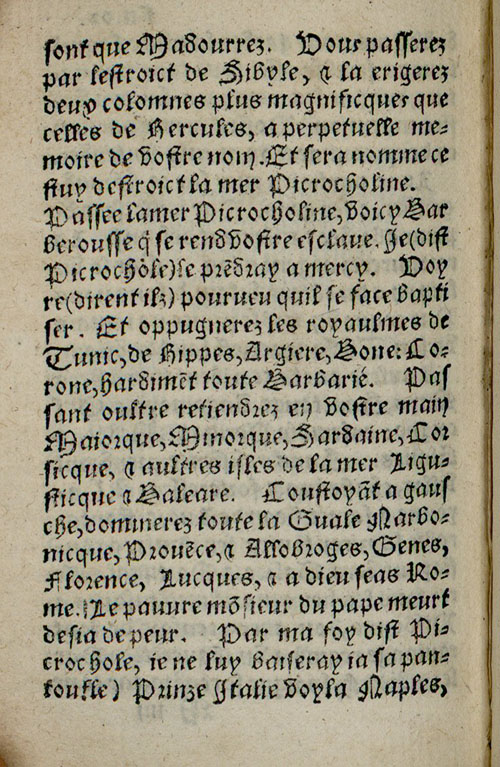 sont que Madourrez. Vous passerez
par lestroict de Sibyle, & la erigerez
deux colomnes plus magnificques que
celles de Hercules, a perpetuelle me-
moire de vostre nom. Et sera nomme ce
stuy destroict la mer Picrocholine.
Passee lamer Picrocholine, voicy Bar
berousse q̃ se rend vostre esclaue. Je (dist
Picrochôle) le prẽdray a mercy. Voy
re (dirent ilz) pourueu quil se face bapti
ser. Et oppugnerez les royaulmes de
Tunic, de Hippes, Argiere, Bone: Co-
rone, hardimẽt toute Barbarie. Pas
sant oultre retiendrez en vostre main
Maiorque, Minorque, Sardaine, Cor
sicque, & aultres isles de la mer Ligu-
sticque & Baleare. Coustoyãt a gaus
che, dominerez toute la Guale Narbo-
nicque, Prouẽce, & Allobroges, Genes,
Florence, Lucques, & a dieu seas Ro-
me. (Le pauure mõsieur du pape meurt
desia de peur. Par ma foy dist Pi-
crochole, ie ne luy baiseray ia sa pan-
toufle) Prinze Italie voyla Naples,